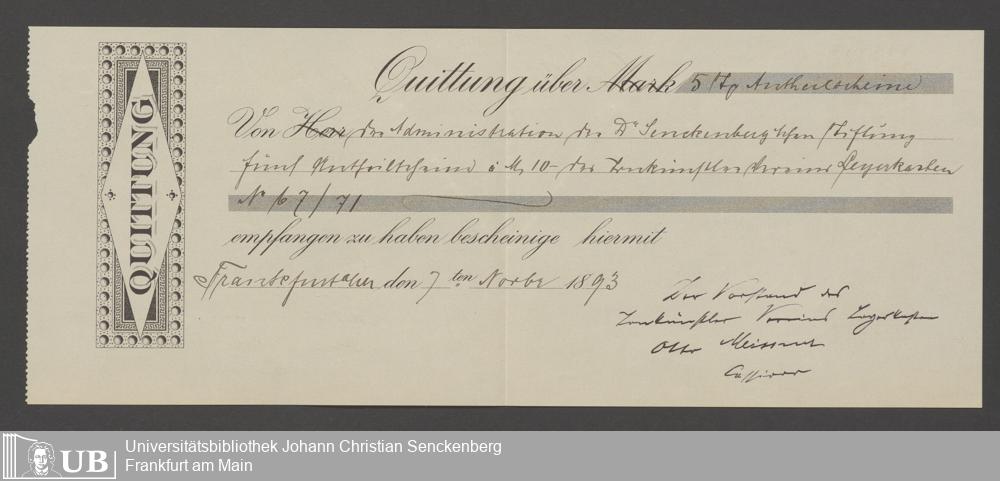 QUITTUNG
Quittung über Mark 5 Stg Antheilscheine
Von Herr der Administration der Dr Senckenberg'schen Stiftung
fünf Antheilscheine à M 10 – des Tonkünstler Vereins Leyerkasten
No 67/71
empfangen zu haben bescheinige hiermit
Frankfurt a/M den 7ten Novbr 1893
Der Vorstand des
Tonkünstler Vereins Leyerkasten
Otto Meissner
Cassirer
UB
Universitätsbibliothek Johann Christian Senckenberg
Frankfurt am Main